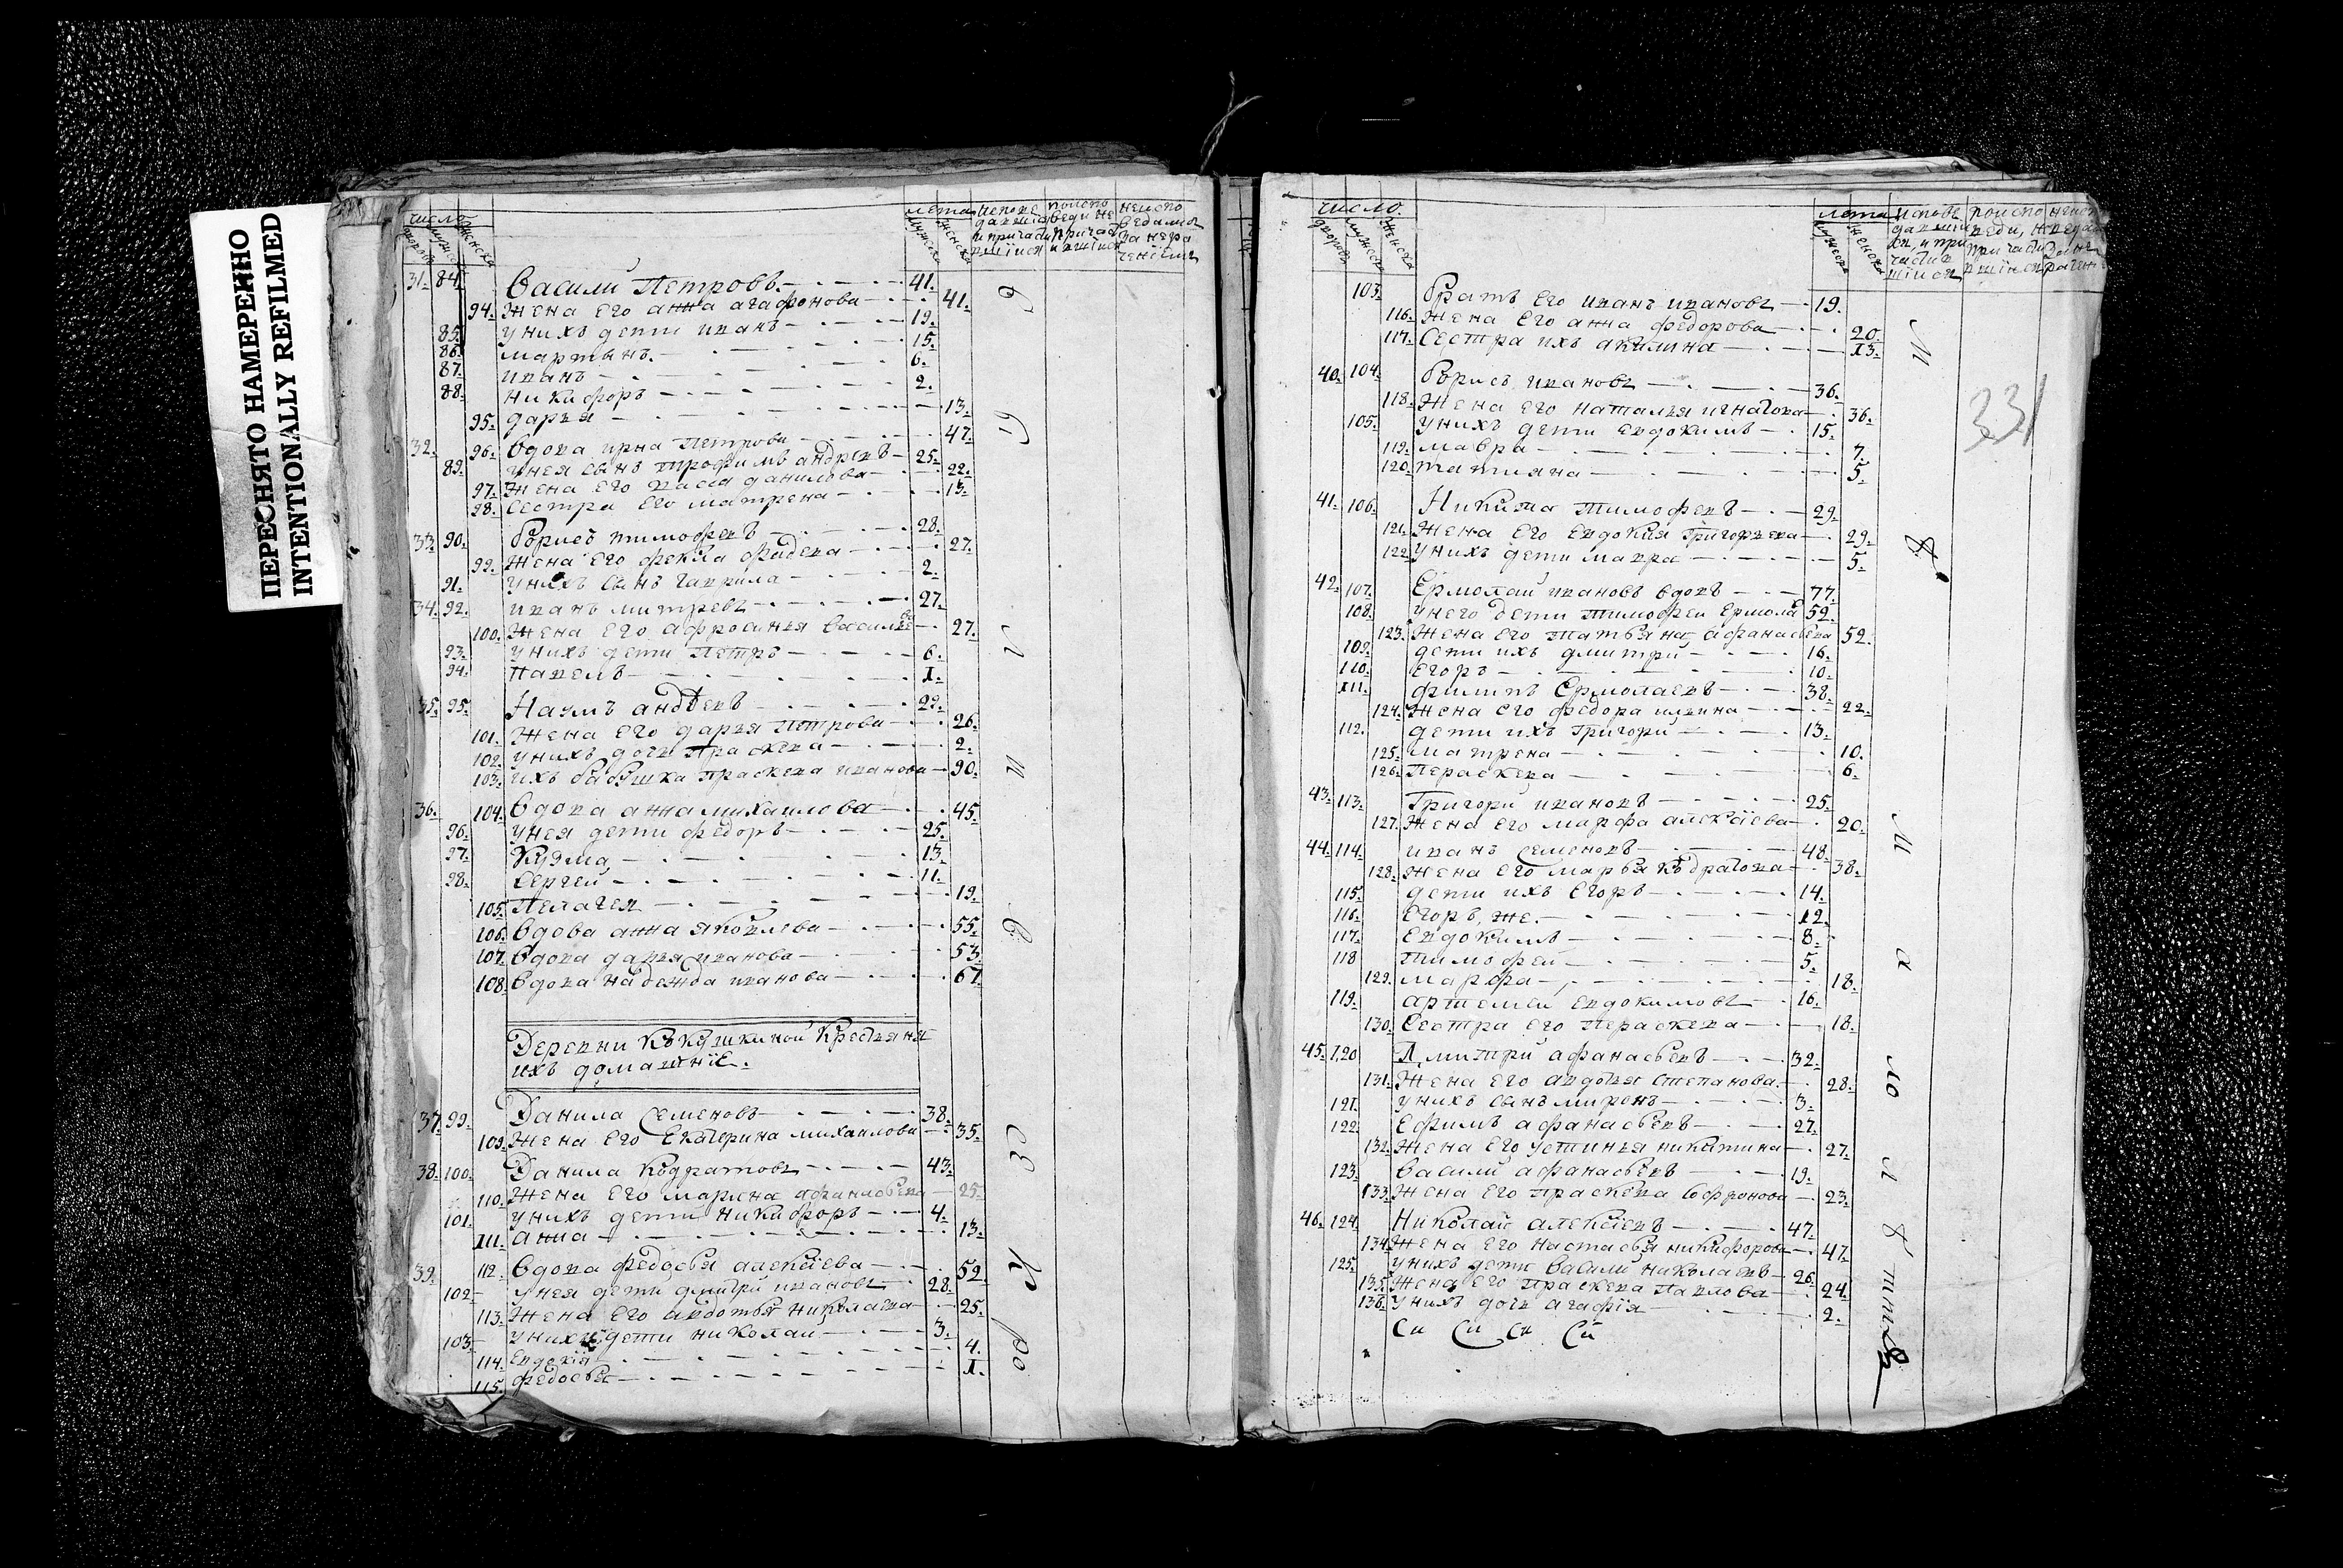 ПЕРЕСНЯТО НАМЕРЕННО
INTENTIONALLY REFILMED
число лета
31. 84. Васили Петровъ 41.
94. Жена Его анна агафонова 41.
85. Унихъ дети иванъ 19.
86. мартынъ. 15.
87. иванъ 6.
88. никифоръ 2.
95. дарья 13.
32. 96. Вдова ирна Петрова 47.
89. унея сынъ трофимъ андревъ 25.
97. Жена Его васса данилова 22.
98. Сестра Его матрена 13.
33. 90. Борисъ тимофевъ 28.
99. Жена Его фекла фадева 27.
91. Унихъ сынъ гаврила 2.
34. 92. иванъ митревъ 27.
100. Жена Его афросинья василье 27.
93. унихъ дети Петръ 6.
94. Павелъ 1.
35. 95. Наумъ андѣевъ 29.
101. Жена Его дарья петрова 26.
102. Унихъ дочь Праскева 2.
103. ихъ бабушка праскева иванова 90.
36. 104. Вдова анна михаилова 45.
96. унея дети федоръ 25.
97. Кузма 13.
98. Сергей 11.
105. Пелагея 19.
106. Вдова анна яковлева 55.
107. Вдова дарья иванова 53.
108. Вдова надежда иванова 67.
Деревни Кокушкиной Крестьяня
ихъ домашнiе.
37. 99. Данила Семеновъ 38.
109. Жена Его Екатерина михаилова 35.
38. 100. Данила Кодратовъ 43.
110. Жена Его марина афанасьева 25.
101. унихъ дети никифоръ 4.
111. анна 13.
39. 112. Вдова федосья алексiева 52.
102. унея дети дмитри ивановъ 28.
113. Жена Его авдотья николаева 25.
103. унихъ дети николаи 3.
114. Евдокiя 4.
115. федосья 1.
число. лета
331
103. Братъ Его иванъ ивановъ 19.
116. Жена Его анна федорова 20.
117. Сестра ихъ акилина 13.
40. 104. Борисъ ивановъ 36.
118. Жена Его наталья игнатова 36.
105. унихъ дети Евдокимъ 15.
119. мавра 7.
120. татияна 5.
41. 106. Никита тимофевъ 29.
121. Жена Его Евдокия Григорьева 29.
122. унихъ дети мавра 5.
42. 107. Ермолай ивановъ вдовъ 77.
108. унего дети тимофеи Ермолае 52.
123. Жена Его татьяна афанасьева 52.
109. дети ихъ дмитри 16.
110. Егоръ 10.
111. филипъ Ермолаевъ 38.
124. Жена Его федора ильина 22.
112. дети ихъ Григори 13.
125. матрена 10.
126. Пераскева 6.
43. 113. Григори ивановъ 25.
127. Жена Его марфа алексiева 20.
44. 114. иванъ Семеновъ 48.
128. Жена Его марья Кодратова 38.
115. дети ихъ Егоръ 14.
116. Егоръ же. 12.
117. Евдокимъ 8.
118 тимофеи 5.
129. марфа 18.
119. артемеи Евдокимовъ 16.
130. Сестра Его Пераскева 18.
45. 120 Дмитри афанасьевъ 32.
131. Жена Его авдотья степанова. 28.
121. унихъ сынъ миронъ 3.
122. Ефимъ афанасьевъ 27.
132. Жена Его устинья никитина 27.
123. Васили афанасьевъ 19.
133. Жена Его праскева Софронова 23.
46. 124. Николаи алексiевъ 47.
134. Жена Его настасья никифорова 47.
125. унихъ дети Васили николаевъ 26.
135. Жена Его праскева Павлова 24.
136. унихъ дочь агафiя 2.